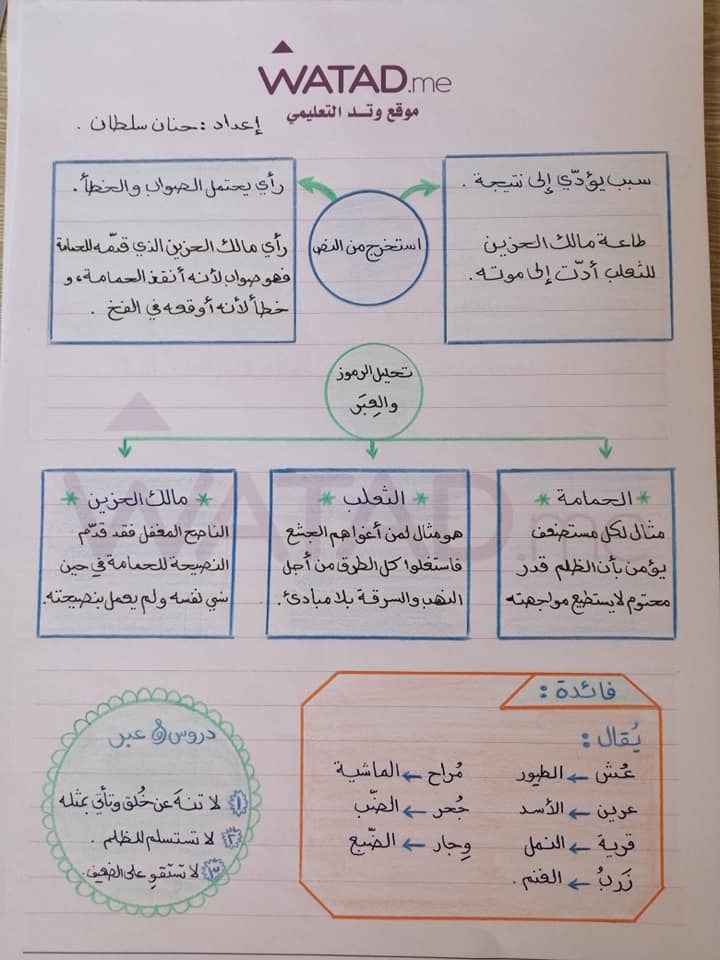 WATAD.me
موقع وتد التعليمي
إعداد : حنان سلطان .
استخرج من النص
سبب يؤدّي إلى نتيجة .
طاعة مالك الحزين
للثعلب أدّت إلى موته .
رأي يحتمل الصواب والخطأ .
رأي مالك الحزين الذي قدّمه للحمامة
فهو صواب لأنه أنقذ الحمامة، و
خطأ لأنه أوقعه في الفخ .
تحليل الرموز
والعِبَر
* الحمامة *
مثال لكل مستضعف
يؤمن بأن الظلم قدر
محتوم لا يستطيع مواجهته
* الثعلب *
هو مثال لمن أغواهم الجشع
فاستغلوا كل الطرق من أجل
النهب والسرقة بلا مبادئ .
* مالك الحزين *
الناصح المغفل فقد قدّم
النصيحة للحمامة في حين
نسي نفسه ولم يعمل بنصيحته .
فائدة :
يُقال :
عُش ← الطيور
عرين ← الأسد
قرية ← النمل
زَربُ ← الغنم .
مُراح ← الماشية
جُحر ← الضّب
وِجار ← الضّبع
دروس و عبر
١ لا تنهَ عن خُلق وتأتي بمثله
٢ لا تستسلم للظلم .
٣ لا تَستَقوِ على الضعيف .
WATAD.me